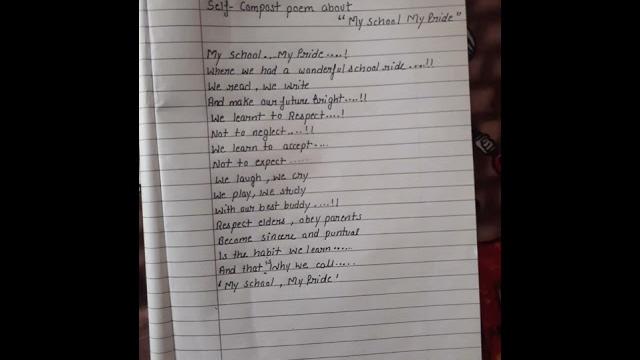 Self- Compost poem about
"My school My Pride"
My school...My Pride....!
Where we had a wonderful school ride....!!
We read, we write
And make our future bright....!!
We learnt to Respect....!
Not to neglect....!!
We learn to accept....
Not to expect.....
We laugh, we cry
We play, we study
With our best buddy....!!
Respect elders, obey parents
Become sincere and puntual
Is the habit we learn.....
And that's Why we call.....
'My school, My Pride'